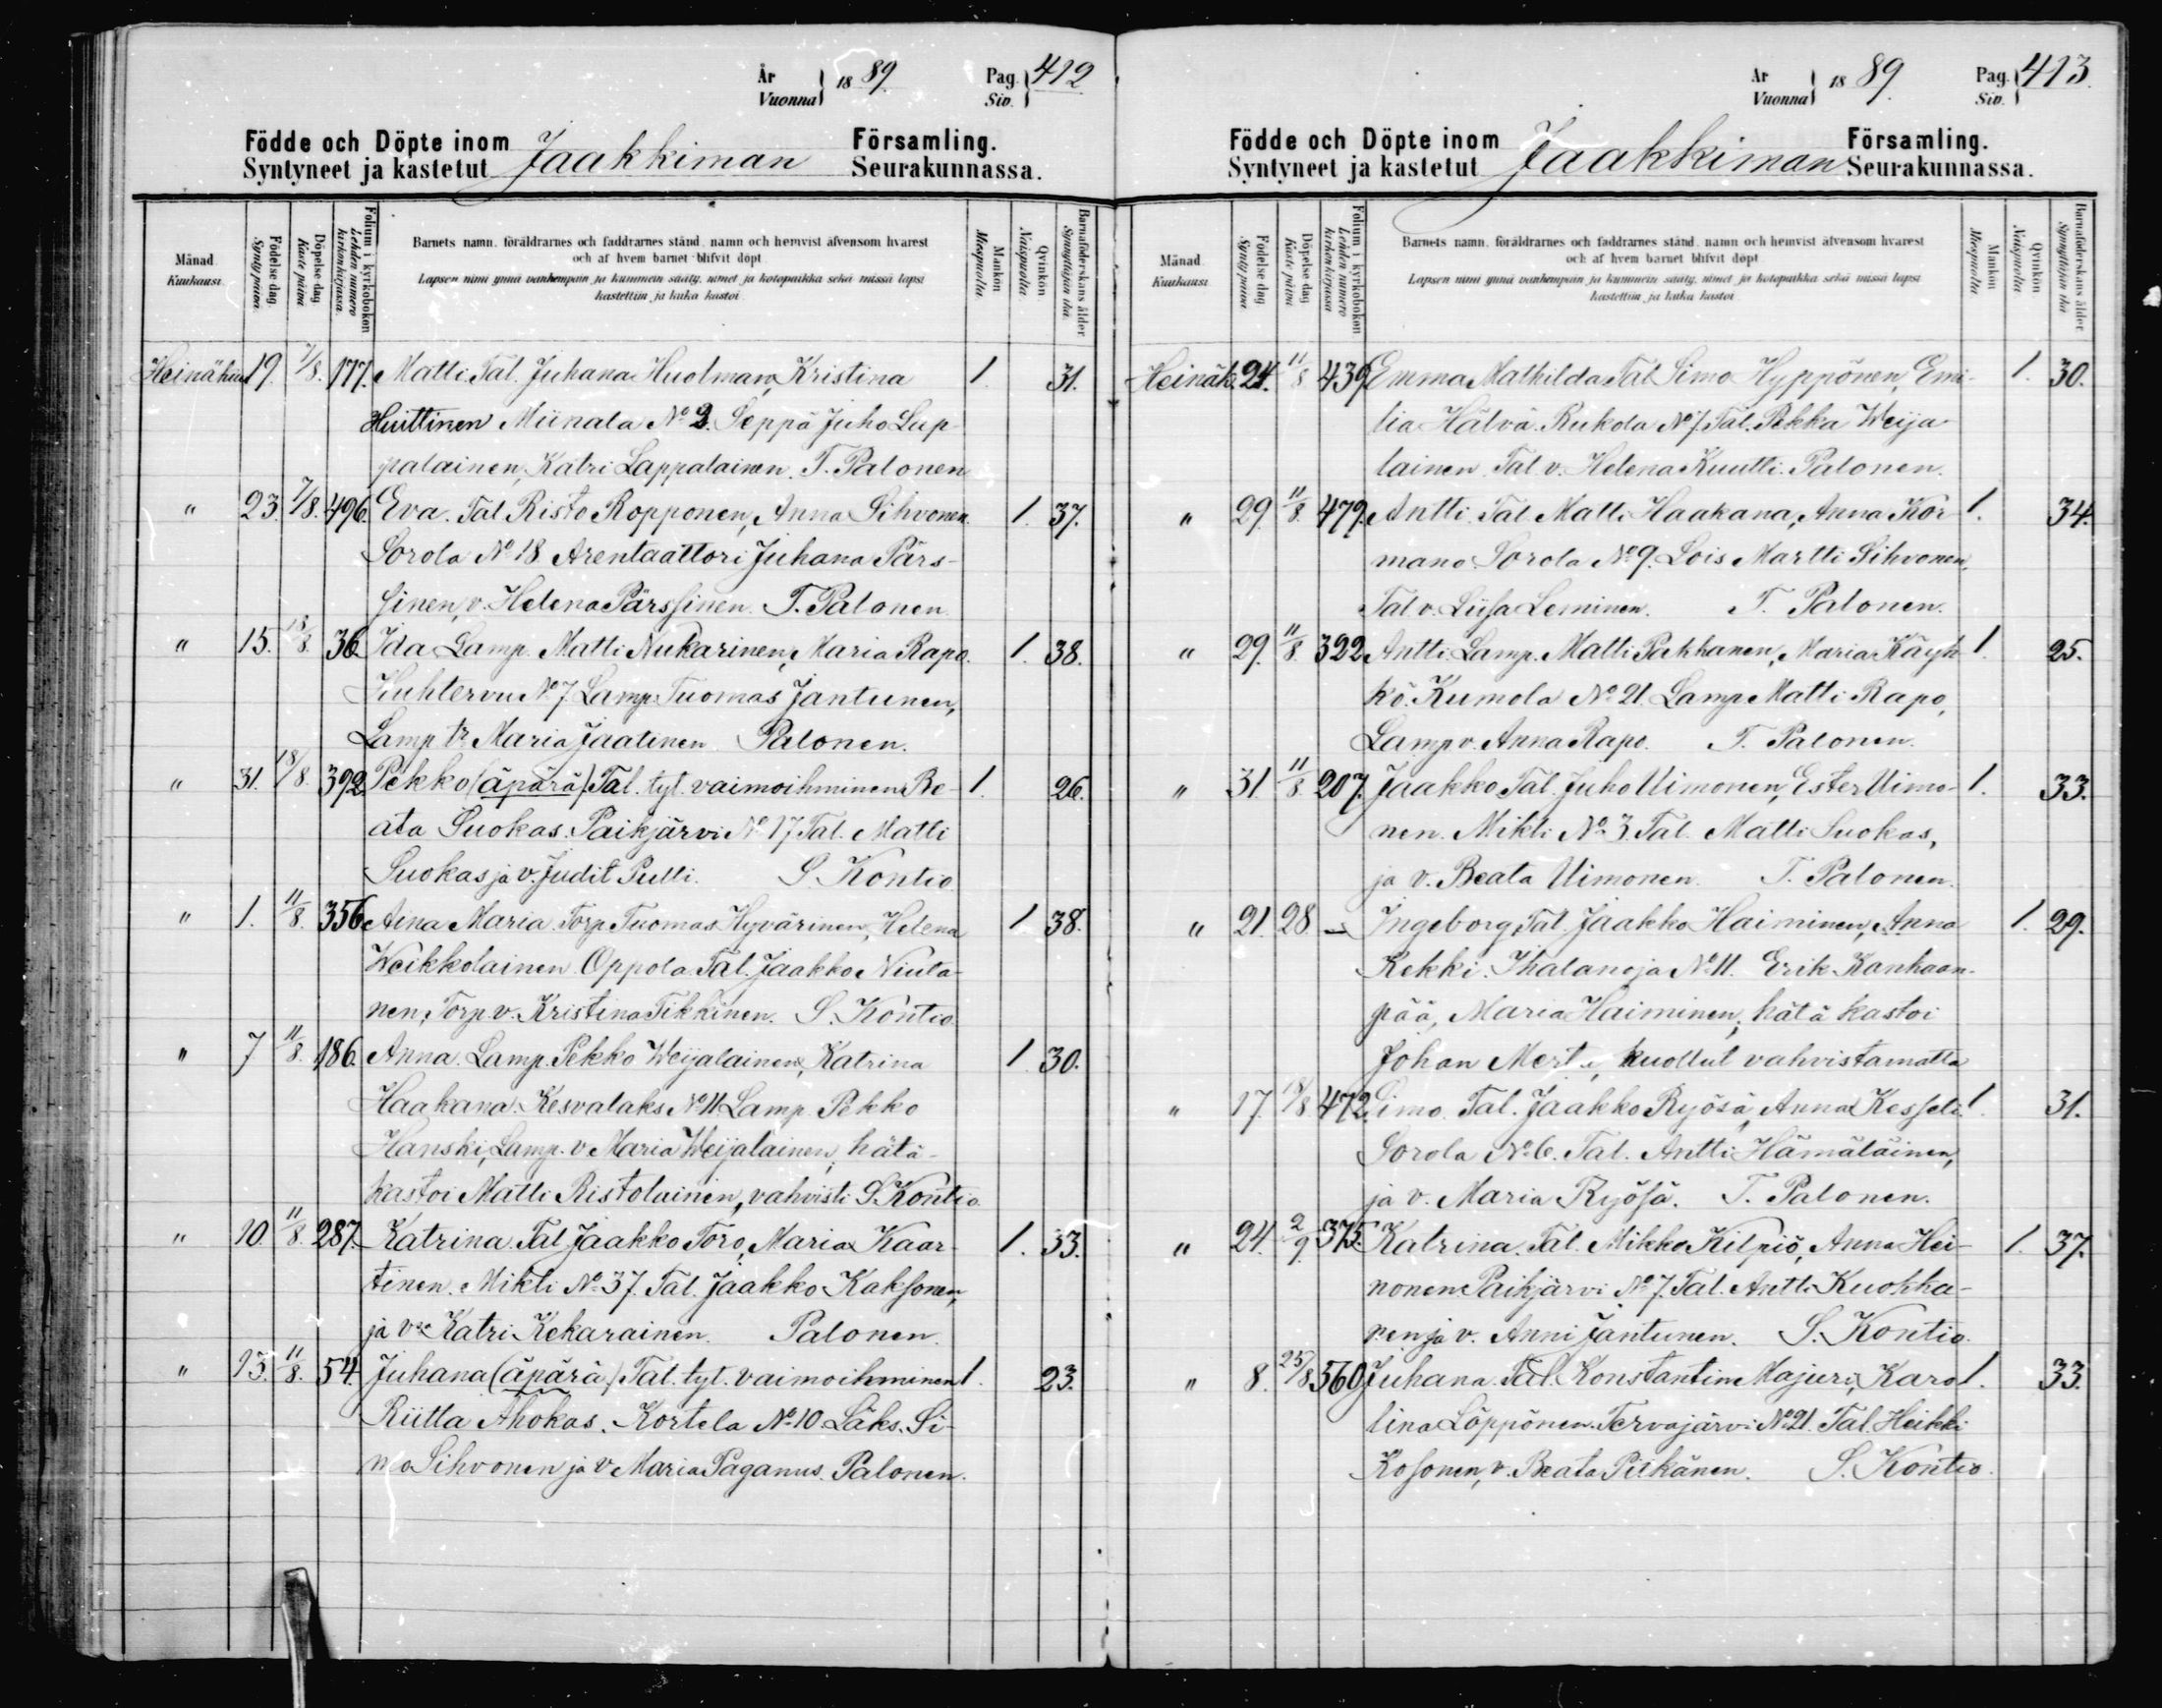 År
Vuonna } 1889. Pag. Siv. } 412
Födde och Döpte inom Jaakkiman Församling.
Syntyneet ja kastetut Seurakunnassa.
Månad. Kuukausi.
Födelse dag. Synty päiwä
Döpelse dag Kaste päiwä
Folium i kyrkobokon Lehden numero kirkonkirjassa.
Barnets namn, föräldrarnes och faddrarnes stånd, namn och hemvist äfvensom hvarest
och af hvem barnet blifvit döpt.
Lapsen nimi ynnä vanhempain ja kummein sääty, nimet ja kotopaikka sekä missä lapsi
kastettiin ja kuka kastoi.
Mankön Miespuolia
Qvinkön Naispuolia
Barnaföderskans ålder Synnyttäjän ikä
Heinäkuu 19. 7/8. 177. Matti. Tal. Juhana Huolman, Kristina 1. 31.
Huittinen Miinala No 2. Seppä Juho Lap-
palainen, Katri Lappalainen. T. Palonen
" 23. 7/8. 496. Eva. Tal. Risto Ropponen, Anna Sihvonen. 1. 37.
Sorola No 18 Arentaattori Juhana Pärs-
sinen, v. Helena Pärssinen. T. Palonen.
" 15. 18/8. 36. Ida Lamp. Matti Nukarinen, Maria Rapo. 1. 38.
Kuhtervu No 7 Lamp. Tuomas Jantunen,
Lamp. tr Maria Jaatinen. Palonen.
" 31. 18/8. 392. Pekko (äpärä). Tal. tyt. vaimoihminen Be- 1. 26.
ata Suokas. Paikjärvi No 17 Tal. Matti
Suokas ja v. Judit Pulli. S. Kontio
" 1. 11/8. 356 Aina Maria. Torp. Tuomas Hyvärinen, Helena 1 38.
Weikkolainen Oppola. Tal. Jaakko Niuta-
nen, Torp. v. Kristina Tikkinen. S. Kontio
" 7 11/8. 186. Anna. Lamp. Pekko Weijalainen, Katrina 1 30.
Haakana. Kesvalaks No 11 Lamp. Pekko
Hanski, Lamp. v. Maria Weijalainen, hätä-
kastoi Matti Ristolainen, vahvisti S. Kontio.
" 10. 11/8. 287. Katrina. Tal. Jaakko Toro, Maria Kaar- 1. 33.
tinen. Mikli No 37. Tal. Jaakko Kaksonen,
ja v:o Katri Kekarainen. Palonen.
" 13. 11/8. 54. Juhana (äpärä) Tal. tyt. vaimoihminen 1. 23.
Riitta Ahokas. Kortela No 10 Läks. Si-
mo Sihvonen ja v Maria Paganus. Palonen.
År
Vuonna } 1889. Pag. Siv. } 413.
Födde och Döpte inom Jaakkiman Församling.
Syntyneet ja kastetut Seurakunnassa.
Månad. Kuukausi.
Födelse dag Synty päiwä
Döpelse dag. Kaste päiwä
Folium i kyrkobokon Lehden numero kirkonkirjassa
Barnets namn, föräldrarnes och faddrarnes stånd, namn och hemvist äfvensom hvarest
och af hvem barnet blifvit döpt.
Lapsen nimi ynnä vanhempain ja kummein sääty, nimet ja kotopaikka sekä missä lapsi
kastettiin ja kuka kastoi.
Mankön Miespuolia
Qvinkön Naispuolia
Barnaföderskans ålder Synnyttäjän ikä
Heinäk. 24. 11/8 439 Emma Mathilda Tal. Simo Hyppönen, Emi- 1. 30.
lia Hälvä. Rukola No 7. Tal. Pekka Weija-
lainen. Tal. v. Helena Kuutti. Palonen.
" 29. 11/8. 479. Antti. Tal. Matti Haakana, Anna Kor- 1. 34.
mano. Sorola No 9. Lois Martti Sihvonen,
Tal. v. Liisa Leminen. T. Palonen.
" 29. 11/8. 322 Antti Lamp. Matti Pakkanen, Maria Käyh- 1. 25.
kö. Kumola No 21. Lamp. Matti Rapo,
Lamp. v. Anna Rapo. T. Palonen.
" 31. 11/8 207. Jaakko Tal. Juho Uimonen, Ester Uimo- 1. 33.
nen. Mikli No 3. Tal. Matti Suokas,
ja v. Beata Uimonen. T. Palonen.
" 21. 28. — Ingeborg Tal. Jaakko Haiminen, Anna 1. 29.
Kekki. Ihalanoja No 11. Erik Kanhaan-
pää, Maria Haiminen, hätä kastoi
Johan , kuollut vahvistamatta
" 17. 18/8 472. Simo. Tal. Jaakko Ryösä, Anna Kesseli. 1. 31.
Sorola No 6. Tal. Antti Hämäläinen,
ja v. Maria Ryösä. T. Palonen.
" 24. 2/9. 375. Katrina. Tal. Mikko Kilpiö, Anna Hei- 1. 37.
nonen. Paikjärvi No 7. Tal. Antti Kuokka-
nen ja v. Anni Jantunen. S. Kontio.
" 8. 25/8 560 Juhana. Tal. Konstantin Majuri, Karo 1. 33.
lina Löppönen. Tervajärvi No 21. Tal. Heikki
Kosonen, v. Beata Pitkänen. S. Kontio.